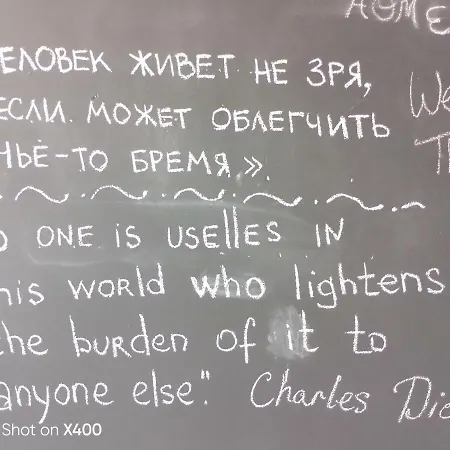 АОМЕ
ЕЛОВЕК ЖИВЕТ НЕ ЗРЯ,
ЕСЛИ МОЖЕТ ОБЛЕГЧИТЬ We
ЧЬЁ-ТО БРЕМЯ.». Th
O ONE IS USElleS IN
his world who lightens
the burden of it to
anyone else". Charles Dic
Shot on X400